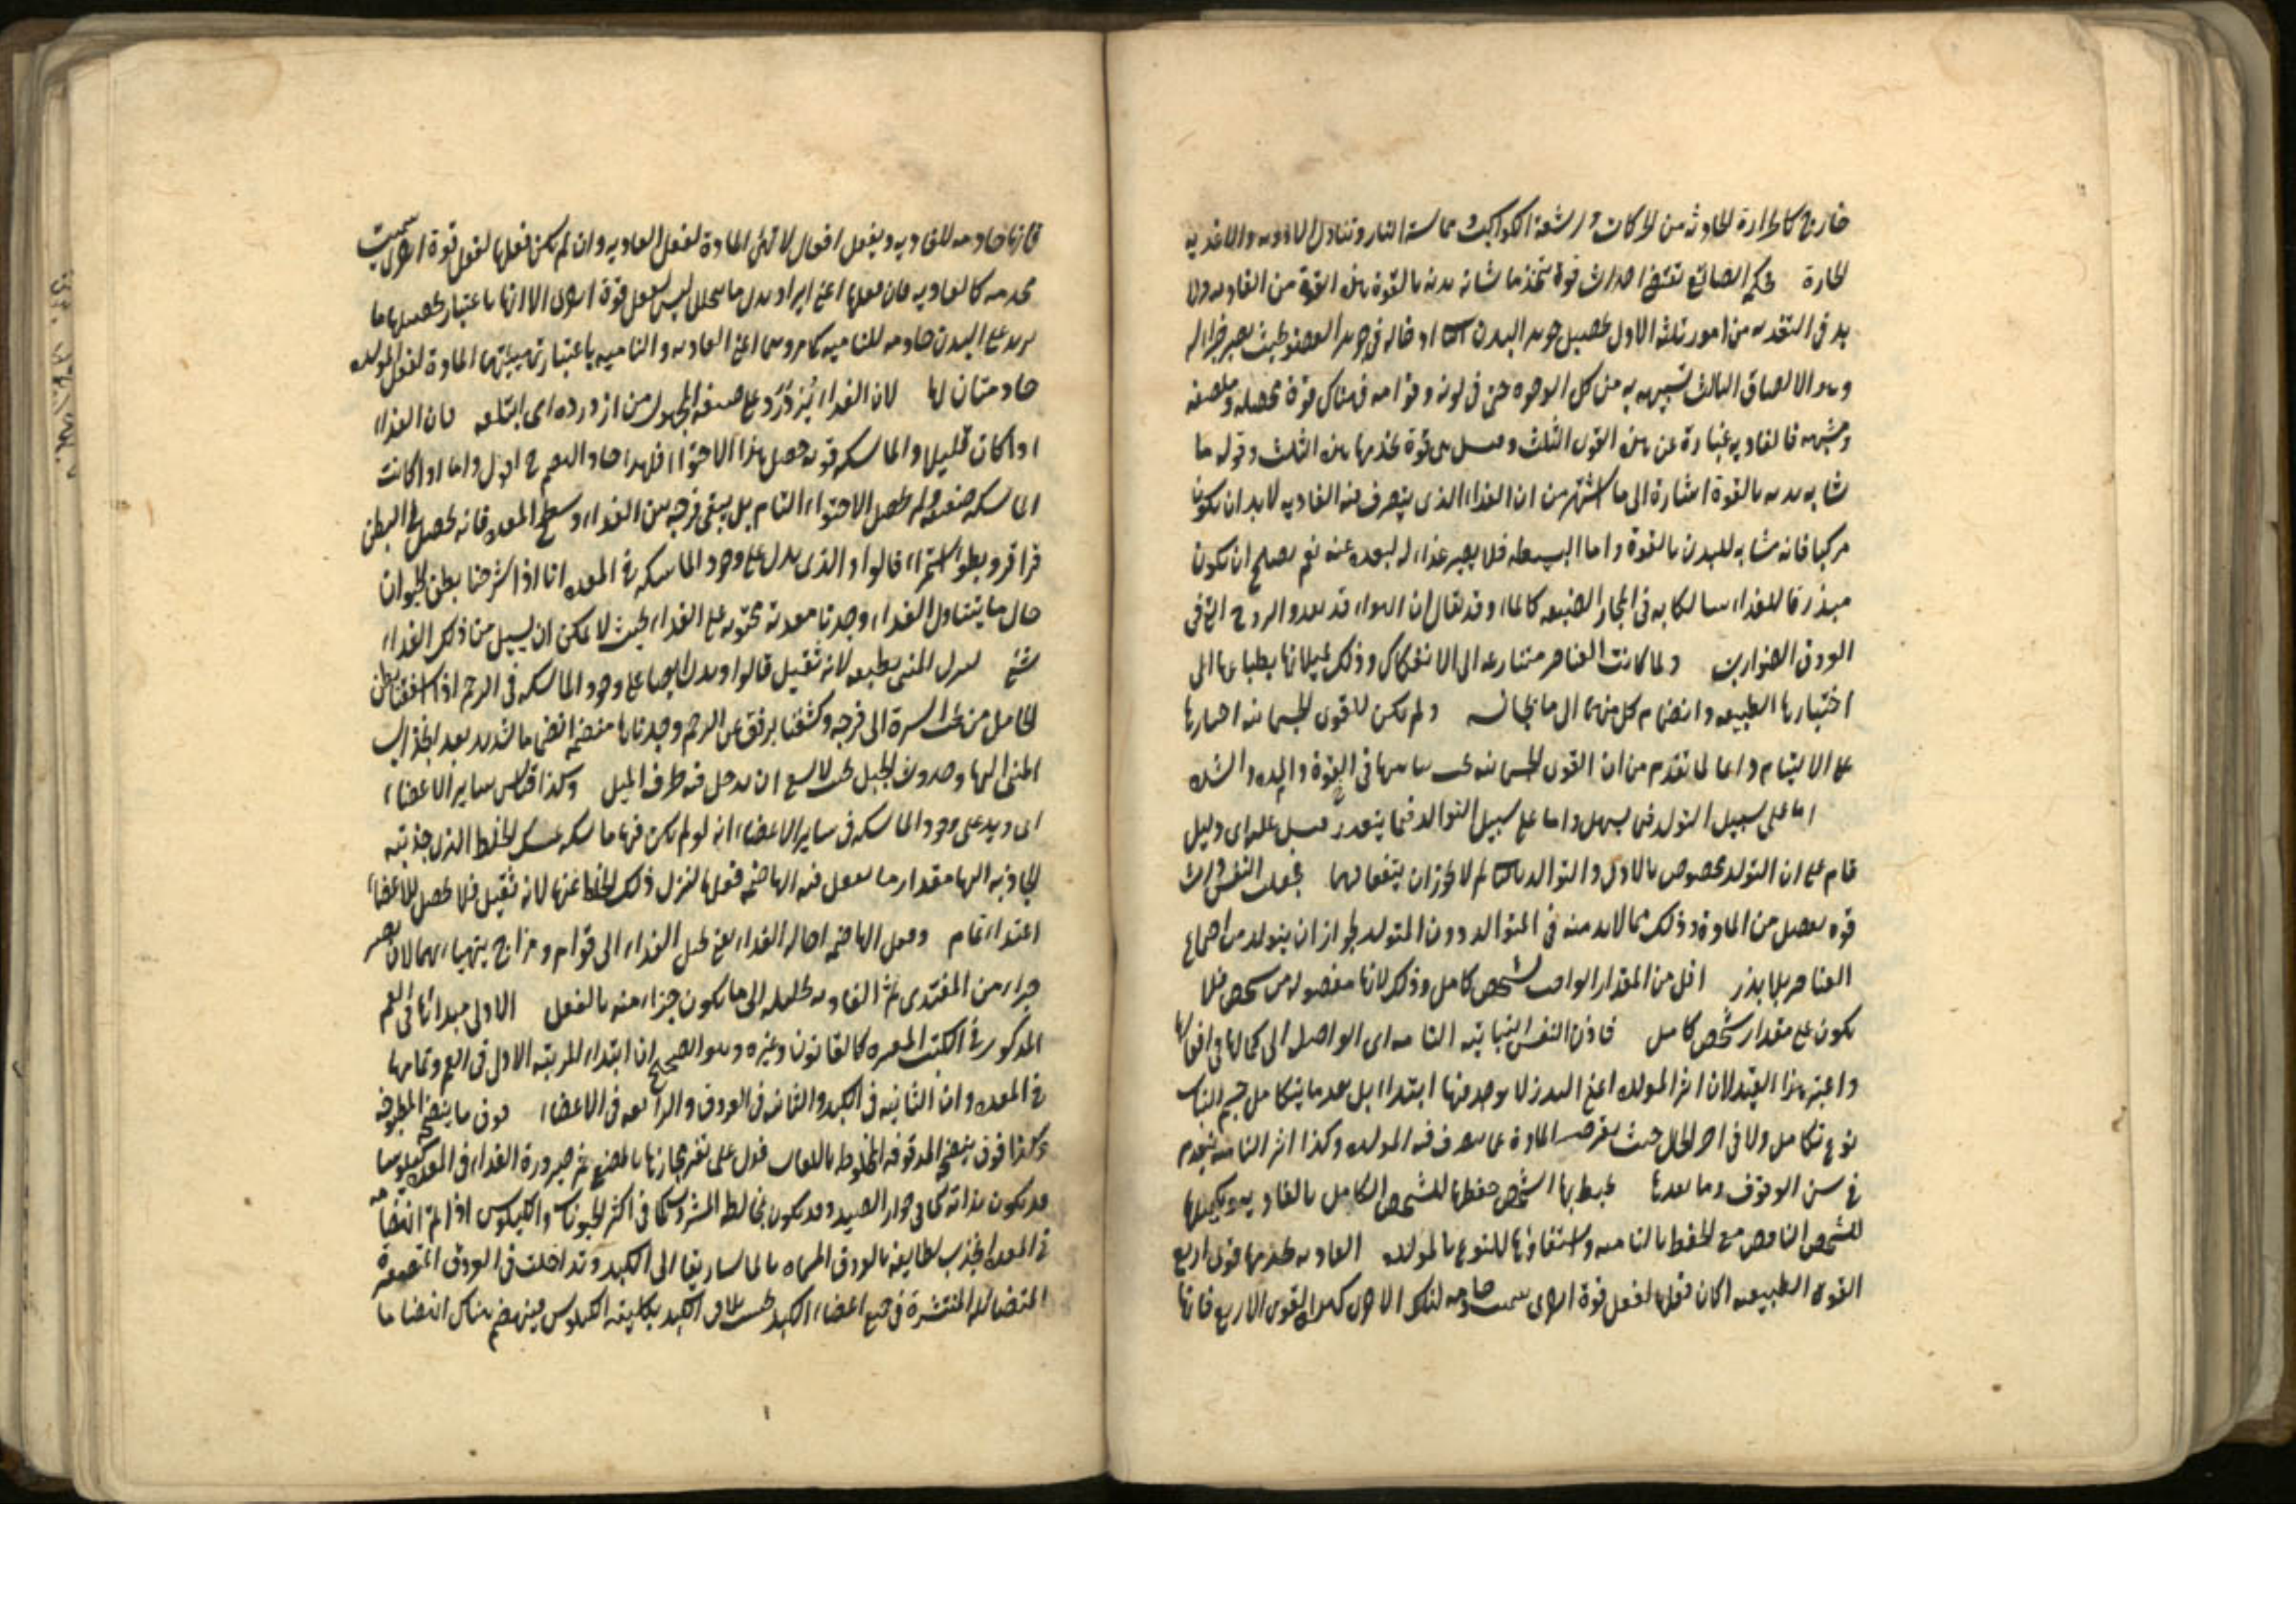 خارج كالحرارة الحادثة من الحركات و اشعة الكواكب و مماسة النار و تناول الادوية والاغذية
الحارة فحكم الصانع تقتضي احداث قوة تتخذ ما شانه بدنه بالقوة هذه القوة من الغاذية ولا
بد في التغذية من امور ثلثة الاول تحصيل جوهر البدن الثانى ادخاله في جوهر العضو بحيث يصير جزءا له
وهو الالصاق الثالث تشبيهه به من كل الوجوه حتى في لونه و قوامه فهناك قوة محصلة و ملصقة
و مشبهة فالغاذية عبارة عن هذه القوى الثلث و قيل هى قوة تخدمها هذه الثلث وقوله ما
شابه بدنه بالقوة اشارة الى ما اشتهر من ان الغذاء الذى يتصرف فيه الغاذية لابد ان يكون
مركبا فانه مشابه للبدن بالقوة واما البسيط فلا يصير غذاء له لبعده عنه نعم يصلح ان يكون
مبذرقا للغذاء سالكا به في المجارى الضيقة كالماء وقد يقال ان الهواء قد يغذو الروح التى في
العروق الضوارب ولما كانت العناصر متنازعة الى الانفكاك وذلك لميلانها بطباعها الى
احيازها الطبيعية وانضمام كل منها الى ما يجانسه ولم يكن للقوى الجسمانية اجبارها
على الالتيام دائما لما تقدم من ان القوى الجسمانية يجب تناهيها في القوة والمدة والشدة
اما على سبيل التولد فيما يسهل واما على سبيل التوالد فيما يتعذر قيل عليه اى دليل
قام على ان التولد مخصوص بالاول والتوالد بالثانى لم لا يجوز ان يتفقا فيهما فجعلت النفس ذات
قوة تفصل من المادة وذلك مما لابد منه في المتوالد دون المتولد لجواز ان يتولد من اجتماع
العناصر بلا بذر اقل من المقدار الواجب لشخص كامل وذلك لانها مفصولة من شخص فلا
يكون على مقدار شخص كامل فاذن النفس النباتية التامة اى الواصلة الى كمالها في افعالها
واعتبر هذا القيد لان اثر المولدة اعنى البذر لا يوجد فيها ابتداء بل بعد ما يتكامل جسم النبات
نوع تكامل ولا في اخر الحال حيث يقصر المادة عما يتصرف فيه المولدة وكذا اثر النامية ينعدم
في سن الوقوف وما بعدها يحفظ بها الشخص حفظها للشخص الكامل بالغاذية و تكميلها
للشخص الناقص مع الحفظ بالنامية واستبقاؤها للنوع بالمولدة الغاذية تخدمها قوى اربع
القوة الطبيعية ان كان فعلها لفعل قوة اخرى سميت خادمة لتلك الاخرى كهذه القوى الاربع فانها
فانها خادمة للغاذية و يفعل افعالا تهيئ المادة لفعل الغاذية وان لم يكن فعلها لفعل قوة اخرى سميت
مخدومة كالغاذية فان فعلها اعنى ايراد بدل ما يتحلل ليس لفعل قوة اخرى الا انها باعتبار تحصيلها ما
يزيد على البدن خادمة للنامية كما مر وهما اعنى الغاذية والنامية باعتبار تهيئتهما المادة لفعل المولدة
خادمتان لها لان الغذاء يزدرد على صيغة المجهول من ازدرده اى ابتلعه فان الغذاء
اذا كان قليلا والماسكة قوية حصل هذا الاحتواء فلهذا صار الهضم ح اجود واما اذا كانت
الماسكة ضعيفة فلم يحصل الاحتواء التام بل يبقى فرجة بين الغذاء وسطح المعدة فانه يحصل في البطن
قراقر و يطول استمراء قالوا والذى يدل على وجود الماسكة في المعدة انا اذا شرحنا بطن الحيوان
حال ما يتناول الغذاء وجدنا معدته محتوية على الغذاء بحيث لا يمكن ان يسيل من ذلك الغذاء
شيء لنزول المنى بطبعه لانه ثقيل قالوا ويدل ايضا على وجود الماسكة في الرحم اذا شققنا بطن
الحامل من تحت السرة الى فرجه وكشفنا برفق عن الرحم وجدناها منضمة انضماما شديدا بعد انجذاب
المنى اليها و حدوث الحبل بحيث لا يسع ان يدخل فيه طرف الميل وكذا قياس ساير الاعضاء
اى و يدل على وجود الماسكة في ساير الاعضاء انه لو لم يكن فيها ماسكة تمسك الخلط الذى جذبته
الجاذبة اليها مقدار ما يفعل فيه الهاضمة فعلها لنزل ذلك الخلط عنها لانه ثقيل فلا يحصل للاعضاء
اغتذاء تام وفعل الهاضمة احالة الغذاء يعنى تحيل الغذاء الى قوام و مزاج يتهياء بهما لان يصير
جزاء من المغتذى ثم الغاذية تحيله الى ما يكون جزاء منه بالفعل الاولى مبدائها في الفم
المذكور في الكتب المعتبرة كالقانون وغيره وهو الصحيح ان ابتداء المرتبة الاولى في الفم وتمامها
في المعدة وان الثانية في الكبد والثالثة في العروق والرابعة في الاعضاء فوق ما ينضج المطبوخة
وكذا فوق ينضج المدقوقة المخلوطة باللعاب فدل على تغير مجاريها بالمضغ ثم صيرورة الغذاء في المعدة كيلوسا
قد يكون بذاته كما في جوارح الصيد وقد يكون بمخالطة المشروب كما في اكثر الحيوانات والكيلوس اذا تم انهضامه
في المعدة انجذب لطايفه بالعروق المسماه بالماساريقا الى الكبد وتداخلت في العروق المتصغرة
المتضائلة المنتشرة في جميع اعضاء الكبد بحيث يلاقى الكبد بكليته الكيلوس فينهضم هناك انهضاما